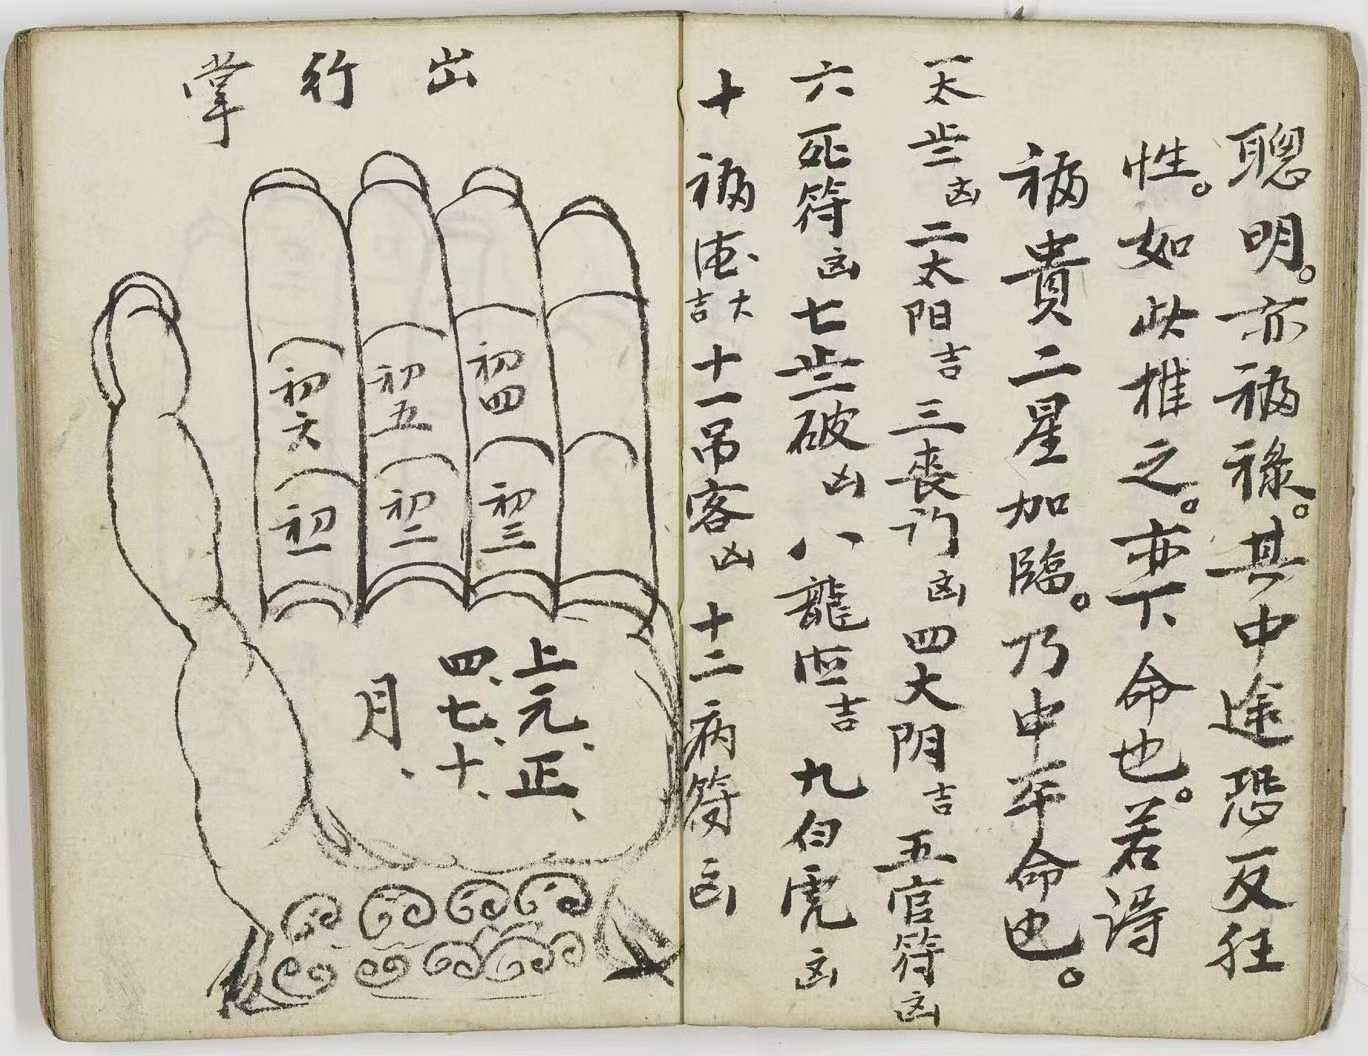 聰明。亦福祿。其中途恐反狂
性。如此推之。亦下命也。若得
福貴二星加臨。乃中平命也。
一太歲凶 二太阳吉 三喪门凶 四太阴吉 五官符凶
六死符凶 七歲破凶 八龍德吉 九白虎凶
十福德大吉 十一吊客凶 十二病符凶
出行掌
初四
初五
初六
初三
初二
初一
上元、正、
四、七、十、
月、